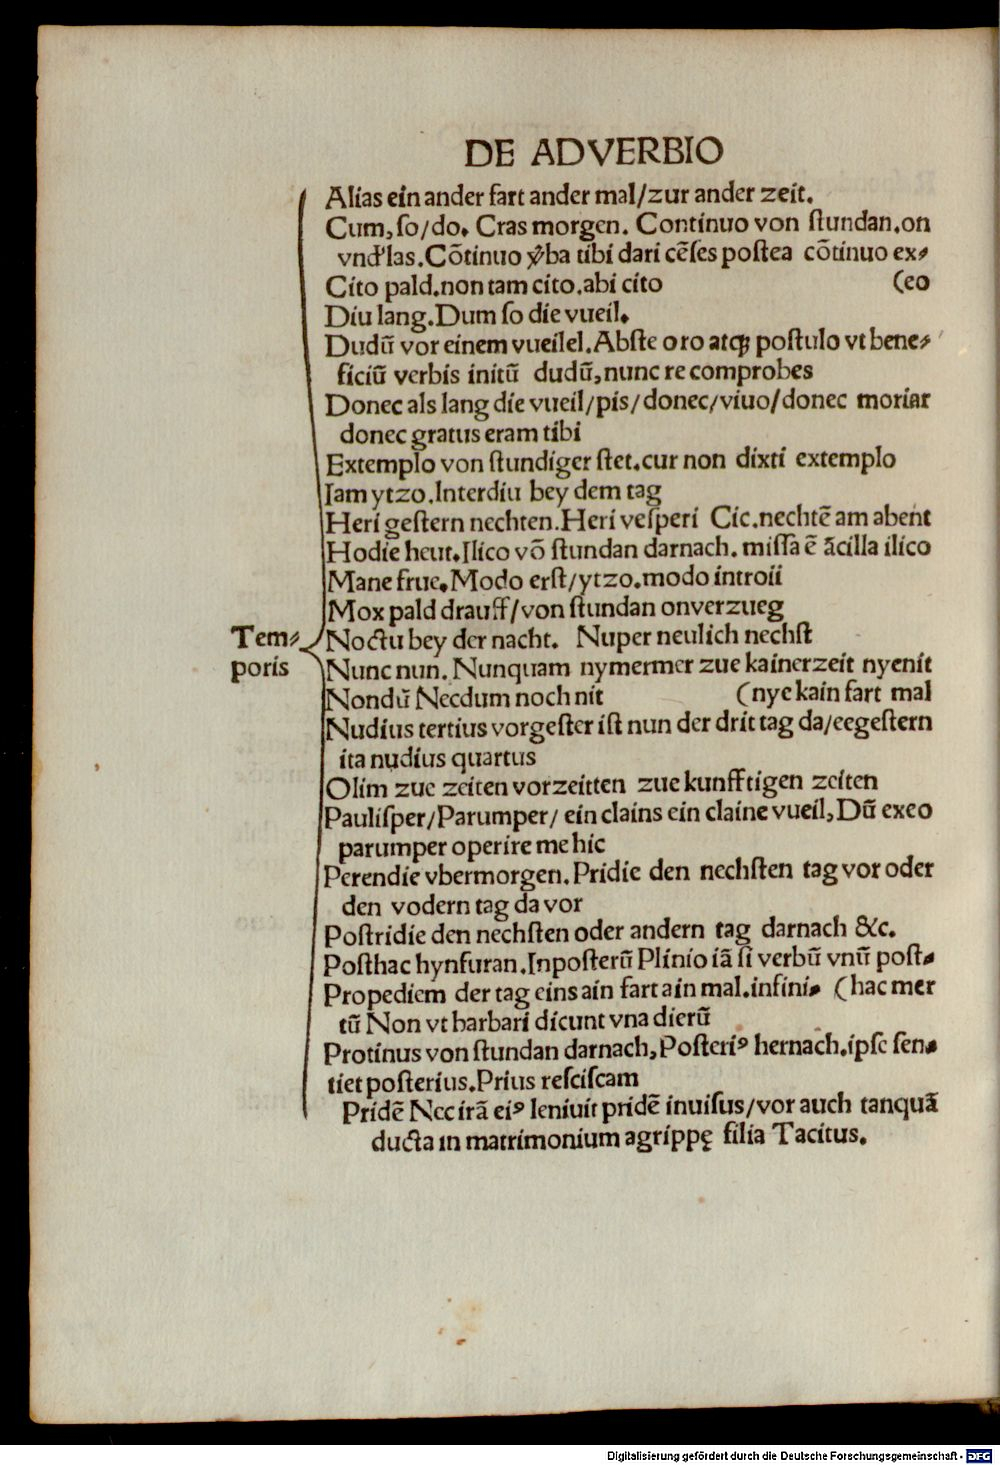 DE ADVERBIO
Alias ein ander fart ander mal/zur ander zeit.
Cum, ſo/do. Cras morgen. Continuo von ſtundan.on
vnd'las.Cōtinuo ꝟba tibi dari cēſes poſtea cōtinuo ex⸗
Cito pald.non tam cito.abi cito (eo
Diu lang.Dum ſo die vueil.
Dudū vor einem vueilel.Abſte oro atqꝫ poſtulo vt bene⸗
ficiū verbis initū dudū,nunc re comprobes
Donec als lang die vueil/pis/donec/viuo/donec moriar
donec gratus eram tibi
Extemplo von ſtundiger ſtet.cur non dixti extemplo
Iam ytzo.Interdiu bey dem tag
Heri geſtern nechten.Heri veſperi Cic.nechtē am abent
Hodie heut.Ilico vō ſtundan darnach. miſſa ē ācilla ilico
Mane frue.Modo erſt/ytzo.modo introii
Mox pald drauff/von ſtundan onverzueg
Tem⸗ Noctu bey der nacht. Nuper neulich nechſt
poris Nunc nun. Nunquam nymermer zue kainerzeit nyenit
Nondū Necdum noch nit (nye kain fart mal
Nudius tertius vorgeſter iſt nun der drit tag da/eegeſtern
ita nudius quartus
Olim zue zeiten vorzeitten zue kunfftigen zeiten
Pauliſper/Parumper/ ein clains ein claine vueil,Dū exeo
parumper operire me hic
Perendie vbermorgen.Pridie den nechſten tag vor oder
den vodern tag da vor
Poſtridie den nechſten oder andern tag darnach &c.
Poſthac hynfuran.Inpoſterū Plinio iā ſi verbū vnū poſt⸗
Propediem der tag eins ain fart ain mal.infini⸗ (hac mer
tū Non vt barbari dicunt vna dierū
Protinus von ſtundan darnach,Poſteriꝰ hernach.ipſe ſen⸗
tiet poſterius.Prius reſciſcam
Pridē Nec irā eiꝰ leniuit pridē inuiſus/vor auch tanquā
ducta in matrimonium agrippę filia Tacitus.
Digitalisierung gefördert durch die Deutsche Forschungsgemeinschaft - DFG